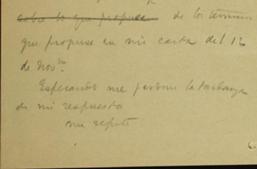 sobre lo que propuse de los términos
que propuse en mi carta del 12
de Nov.bre
Esperando me perdone la tardanza
de mi respuesta
me repito